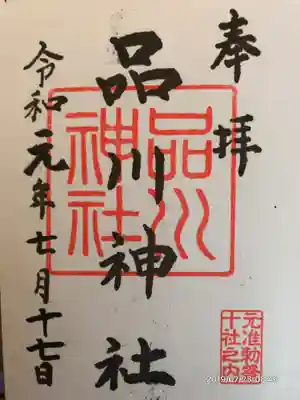 奉拝
品川神社
令和元年七月十七日
品川
神社
元准勅祭
十社之内